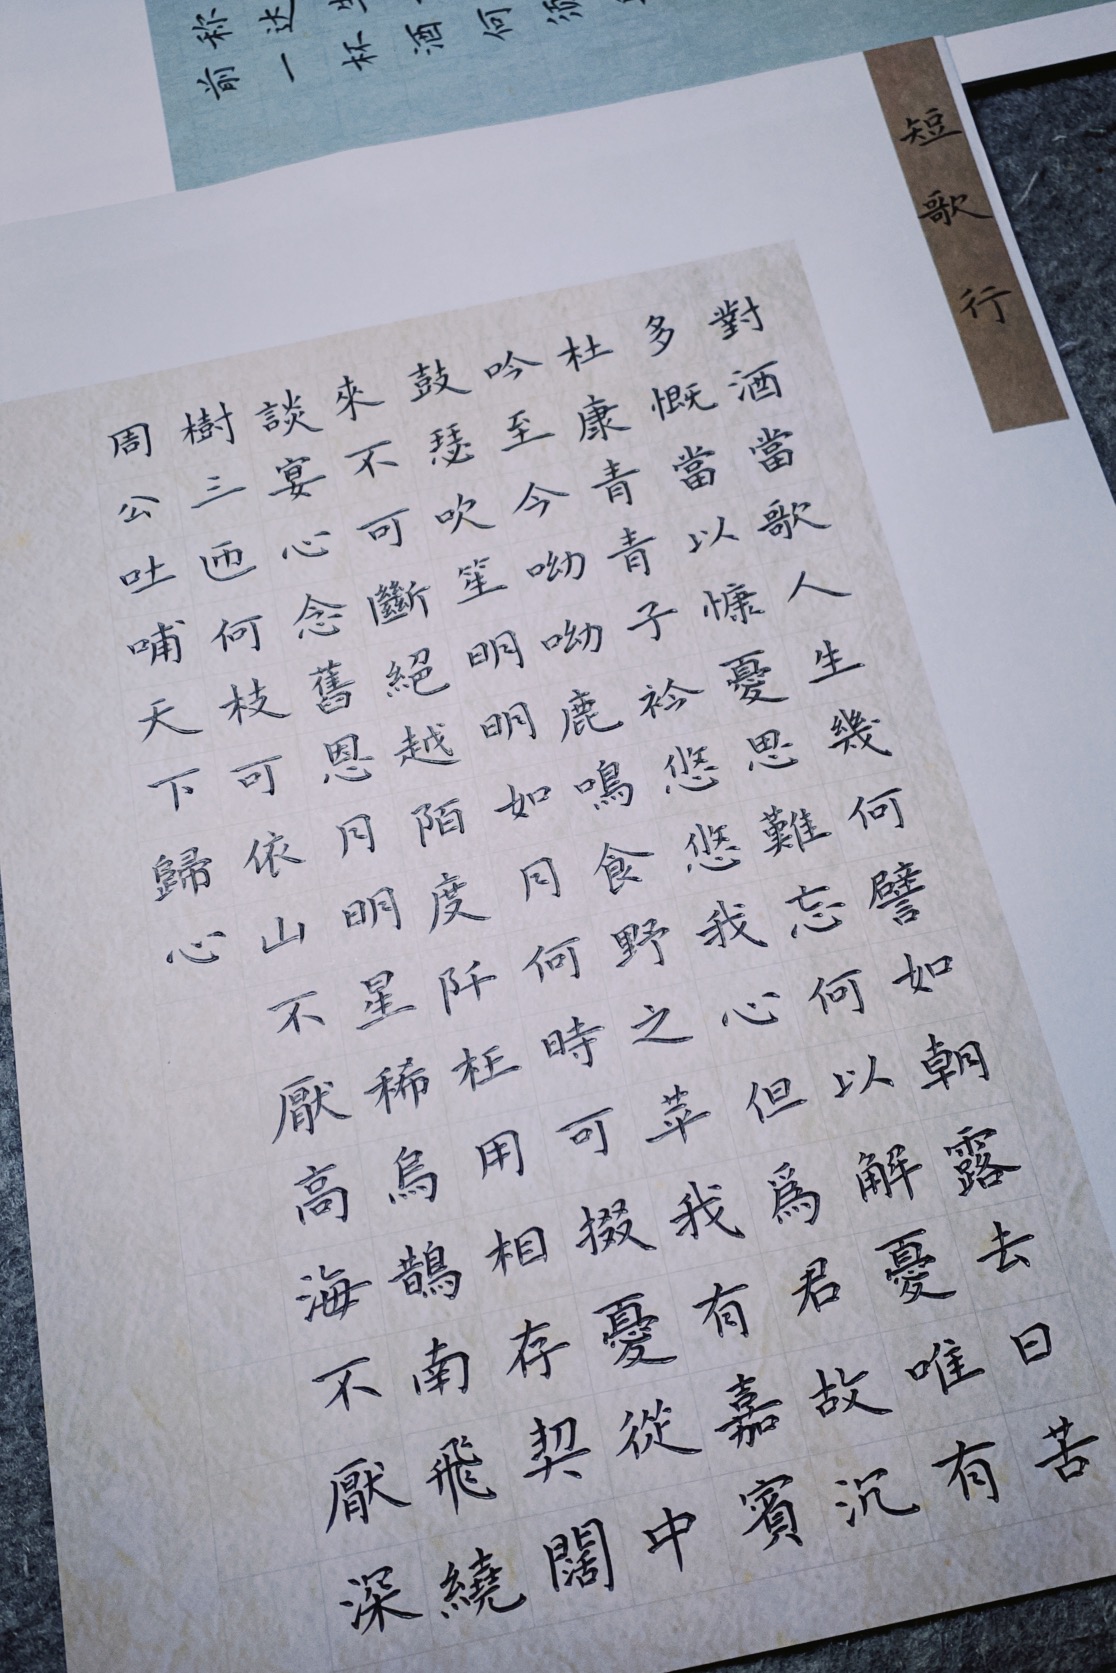 称达
前一杯酒何须
短歌行
對酒當歌人生幾何譬如朝露去日苦
多慨當以慷憂思難忘何以解憂唯有
杜康青青子衿悠悠我心但爲君故沉
吟至今呦呦鹿鳴食野之苹我有嘉賓
鼓瑟吹笙明明如月何時可掇憂從中
來不可斷絕越陌度阡枉用相存契闊
談宴心念舊恩月明星稀烏鵲南飛繞
樹三匝何枝可依山不厭高海不厭深
周公吐哺天下歸心